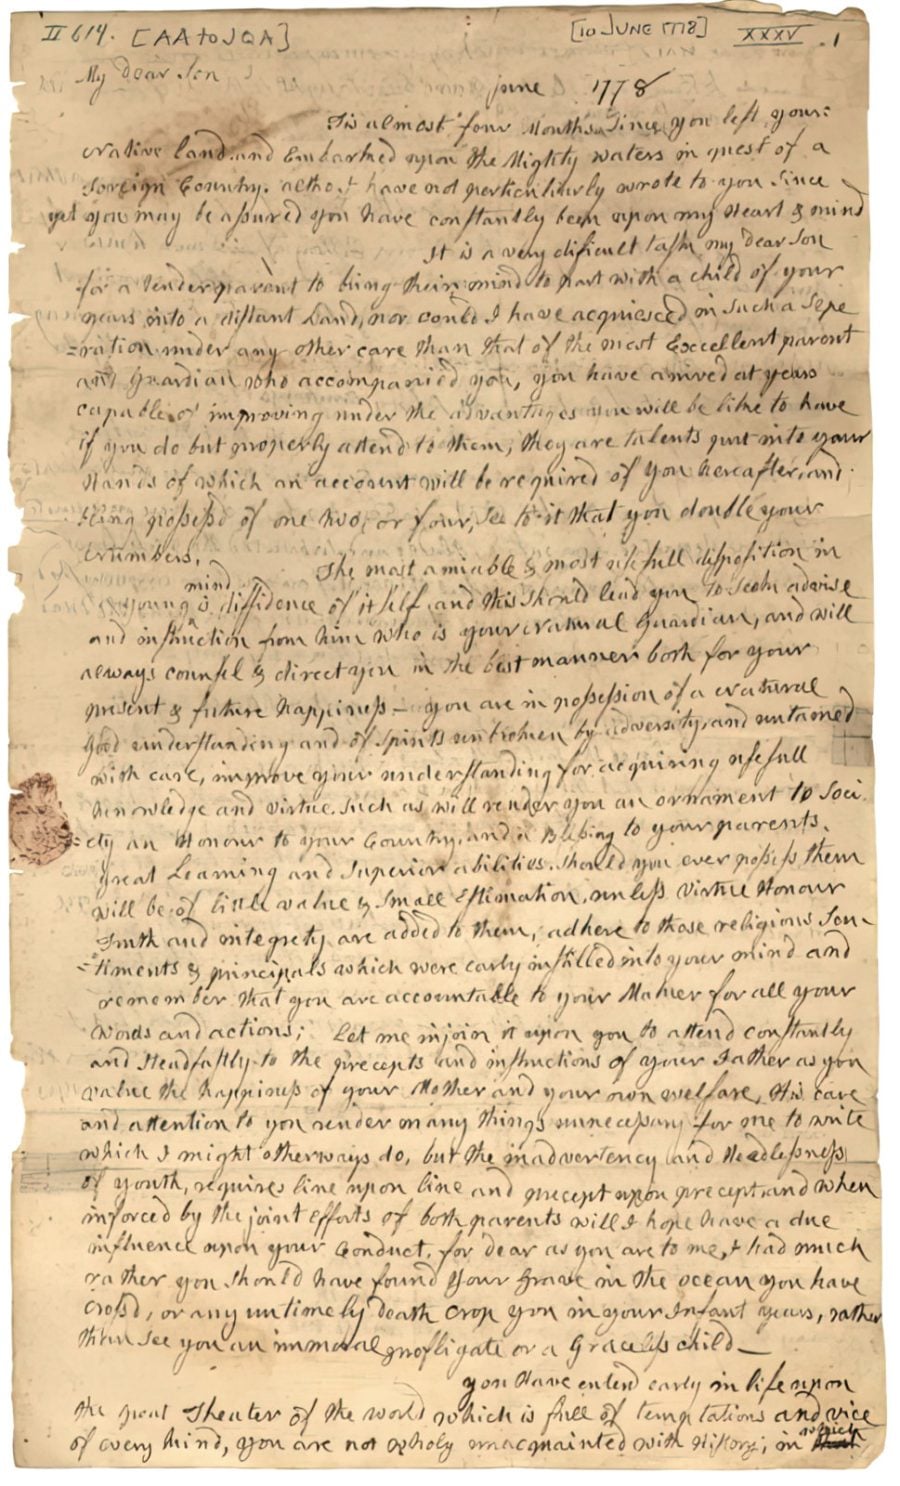 II 614. [AA to JQA] [10 JUNE 1778] XXXV .1
My dear Son
june 1778
Tis almost four Months Since you left your
Native land and Embarked upon the Mighty waters in quest of a
Foreign Country. altho I have not perticuliarly wrote to you Since
yet you may be assured you have constantly been upon my Heart & mind
It is a very dificult task my dear Son
for a tender parent to bring their mind to part with a child of your
years into a distant Land, nor could I have acquiesced in Such a Sepe
=ration under any other care than that of the most Excellent parent
and Guardian who accompanied you, you have arived at years
capable of improving under the advantages you will be like to have
if you do but properly attend to them, they are talents put into your
Hands of which an account will be required of you hereafter, and
being possessd of one, two, or four, see to it that you double your
Numbers.
The most amiable & most usefull disposition in
a young mind is diffidence of itself, and this should lead you to seek advise
and instruction from him who is your Natural Guardian, and will
always counsel & direct you in the best manner both for your
present & future happiness — you are in possession of a Natural
good understanding and of Spirits unbroken by adversity, and untamed
with care, improve your understanding for acquiring usefull
knowledge and virtue, Such as will render you an ornament to Soci
=ety an Honour to your Country, and a Blessing to your parents.
great Learning and Superior abilities, should you ever possess them
will be of little value & Small Estimation, unless Virtue Honour
Truth and integrety are added to them, adhere to those religious Sen
=timents & principals which were early instilled into your mind and
remember that you are accountable to your Maker for all your
words and actions; Let me injoin it upon you to attend constantly
and Steadfastly to the precepts and instructions of your Father as you
value the happiness of your Mother and your own welfare, His care
and attention to you render many things unnecessary for me to write
which I might otherways do, but the inadvertency and Headlessness
of youth, requires line upon line and precept upon precept, and when
inforced by the joint Efforts of both parents will I hope have a due
influence upon your Conduct, for dear as you are to me, I had much
rather you should have found your Grave in the ocean you have
crossd, or any untimely death crop you in your Infant years, rather
than see you an immoral profligate or a Graceless child —
you Have enterd early in life upon
the great Theater of the world which is full of temptations and vice
of every kind, you are not wholy unacquainted with History, in which